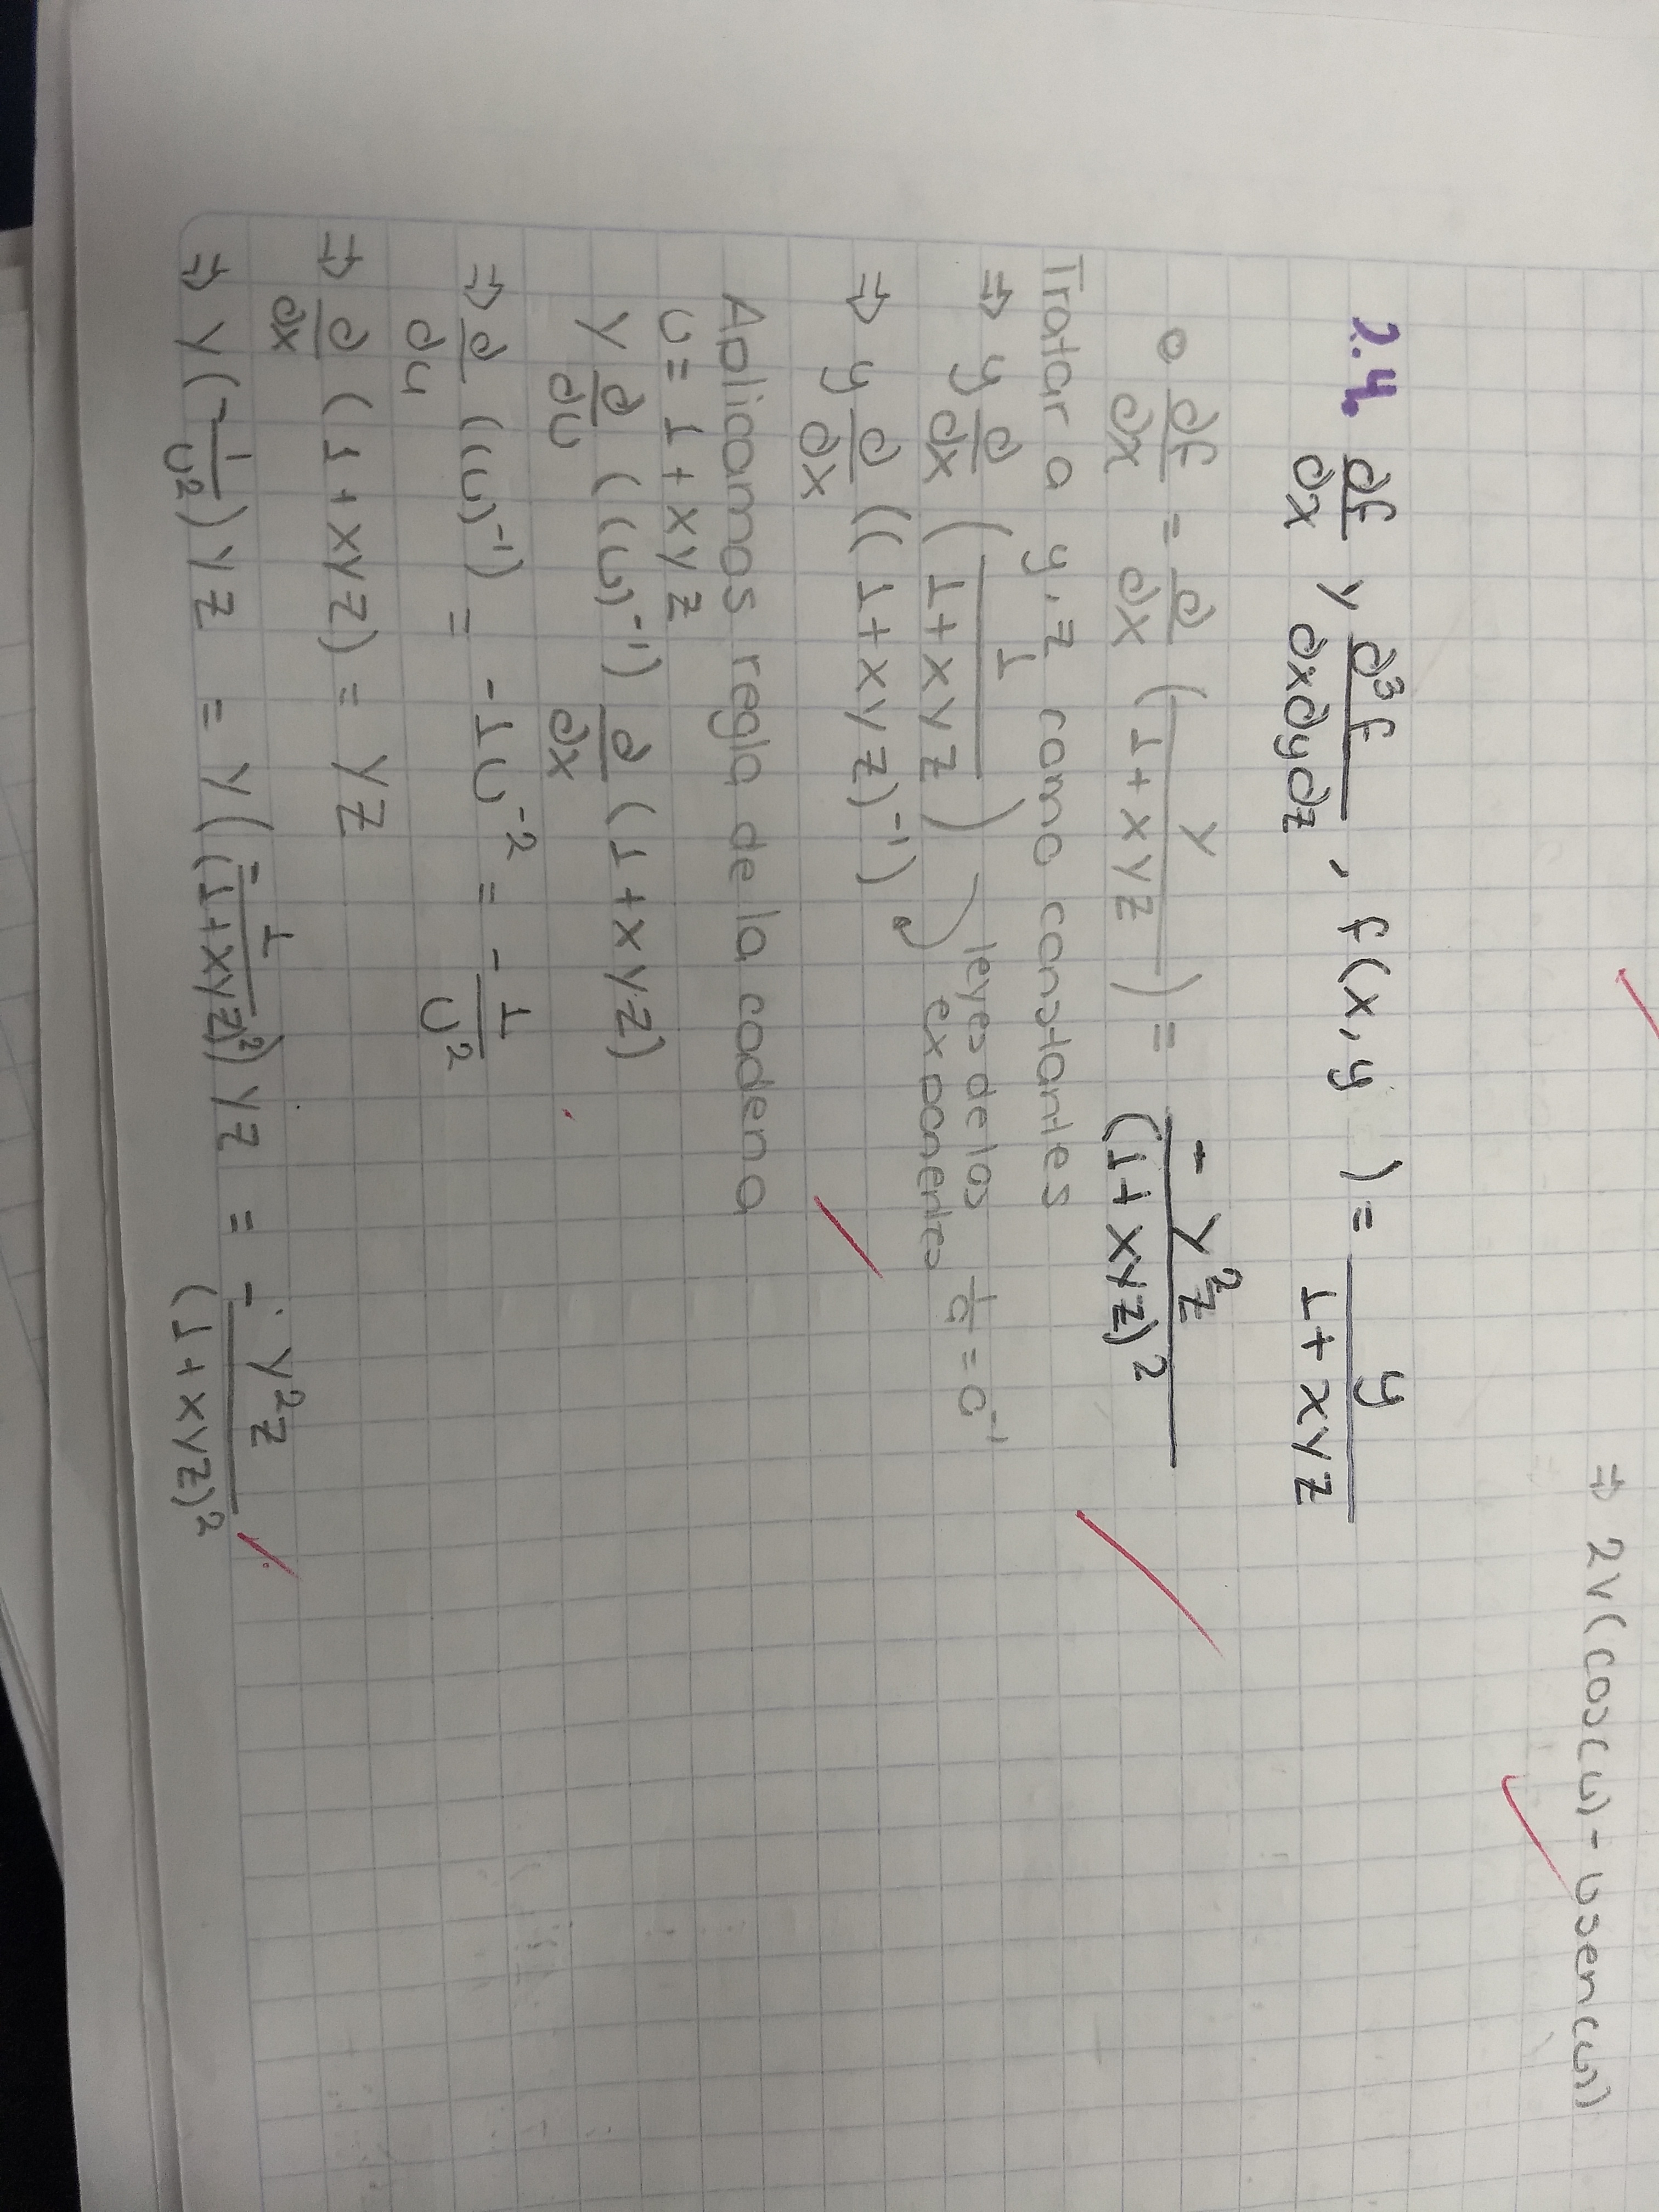 ⇒ 2v(cos(u) - usen(u))
2.4. ∂f/∂x y ∂³f/∂x∂y∂z, f(x, y ) = y/(1+xyz)
∂f/∂x = ∂/∂x (y/(1+xyz)) = -y²z/(1+xyz)²
Tratar a y, z como constantes
⇒ y ∂/∂x (1/(1+xyz)) leyes de los exponentes 1/a = a⁻¹
⇒ y ∂/∂x ((1+xyz)⁻¹)
Aplicamos regla de la cadena
u = 1+xyz
y ∂/∂u ((u)⁻¹) ∂/∂x (1+xyz)
⇒ ∂/∂u ((u)⁻¹) = -1u⁻² = -1/u²
⇒ ∂/∂x (1+xyz) = yz
⇒ y(-1/u²)yz = y(-1/(1+xyz)²)yz = -y²z/(1+xyz)²